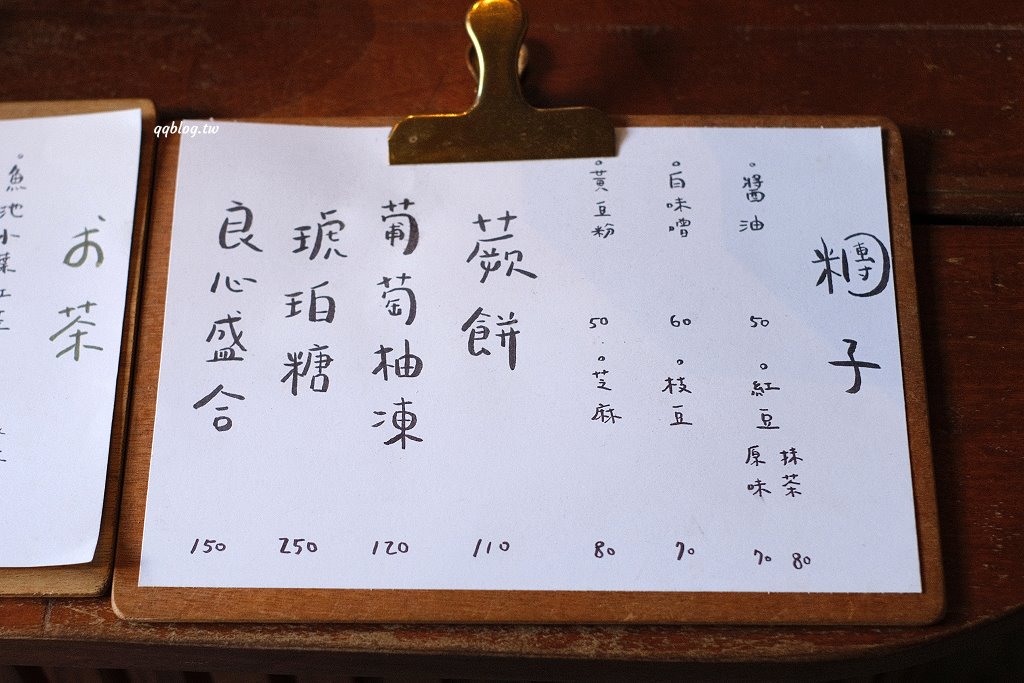 糰子
。醬油 50
。紅豆
抹茶 80
原味 70
。白味噌 60
。枝豆 70
。黃豆粉 50
。芝麻 80
蕨餅 110
葡萄柚凍 120
琥珀糖 250
良心盛合 150
お茶
。魚池小葉紅
qqblog.tw